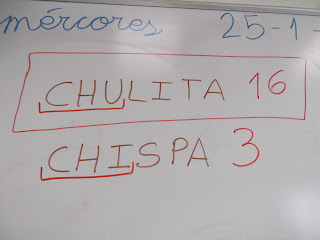 mércores 25-1-
CHULITA 16
CHISPA 3